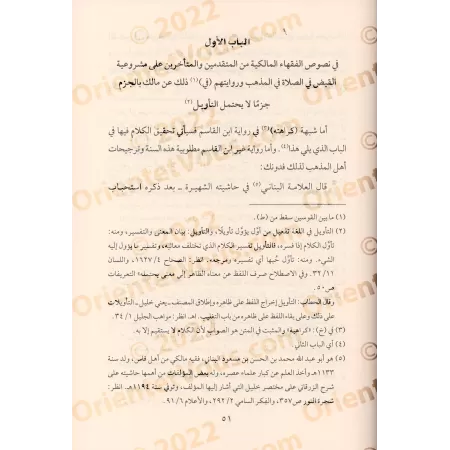 الباب الأول
في نصوص الفقهاء المالكية من المتقدمين والمتأخرين على مشروعية
القبض في الصلاة في المذهب وروايتهم (في)(١) ذلك عن مالك بالجزم
جزمًا لا يحتمل التأويل(٢)
أما شبهة (كراهته)(٣) في رواية ابن القاسم فسيأتي تحقيق الكلام فيها في
الباب الذي يلي هذا(٤). وأما رواية غير ابن القاسم مطلوبية هذه السنة وترجيحات
أهل المذهب لذلك فدونك:
قال العلامة البناني(٥) في حاشيته الشهيرة ـ بعد ذكره استحباب
(١) ما بين القوسين سقط من (ط).
(٢) التأويل في اللغة: تفعيل من أوّل يؤوّل تأويلًا، والتأويل: بيان المعنى والتفسير، ومنه:
تأوّل الكلام إذا فسره، فالتأويل تفسير الكلام الذي تختلف معانيه، وتفسير ما يؤول إليه
الشيء. ومنه: تأوّل حُبها أي تفسيره ومرجعه. انظر: الصحاح ٤/ ١١٢٧، واللسان
١١/ ٣٢. وفي الاصطلاح صرف اللفظ عن معناه الظاهر إلى معنى يحتمله؛ التعريفات
ص٥٠.
وقال الحطاب: التأويل إخراج اللفظ على ظاهره وإطلاق المصنف ـ يعني خليل ـ التأويلات
على ذلك وعلى بقاء اللفظ على ظاهره من باب التغليب. اهـ. انظر: مواهب الجليل ١/ ٣٤.
(٣) في (ع): «كراهية» والمثبت في المتن هو الصواب لأن الكلام لا يستقيم إلا به.
(٤) أي الباب الثاني.
(٥) هو أبو عبد الله محمد بن الحسن بن مسعود البناني، فقيه مالكي من أهل فاس، ولد سنة
١١٣٣هـ وأخذ العلم عن كبار علماء عصره، وله بعض المؤلفات من أهمها حاشيته على
شرح الزرقاني على مختصر خليل التي أشار إليها المؤلف، وتوفي سنة ١١٩٤هـ. انظر:
شجرة النور ص٣٥٧، والفكر السامي ٢/ ٢٩٢، والأعلام ٦/ ٩١.
٥١
© 2022
OrientetVous.com